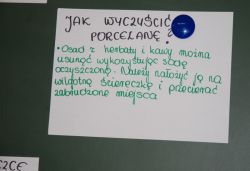 JAK WYCZYŚCIĆ
PORCELANĘ?
• Osad z herbaty i kawy można
usunąć wykorzystując sodę
oczyszczoną. Należy nałożyć ją na
wilgotną ściereczkę i przecierać
zabrudzone miejsca
SZCE